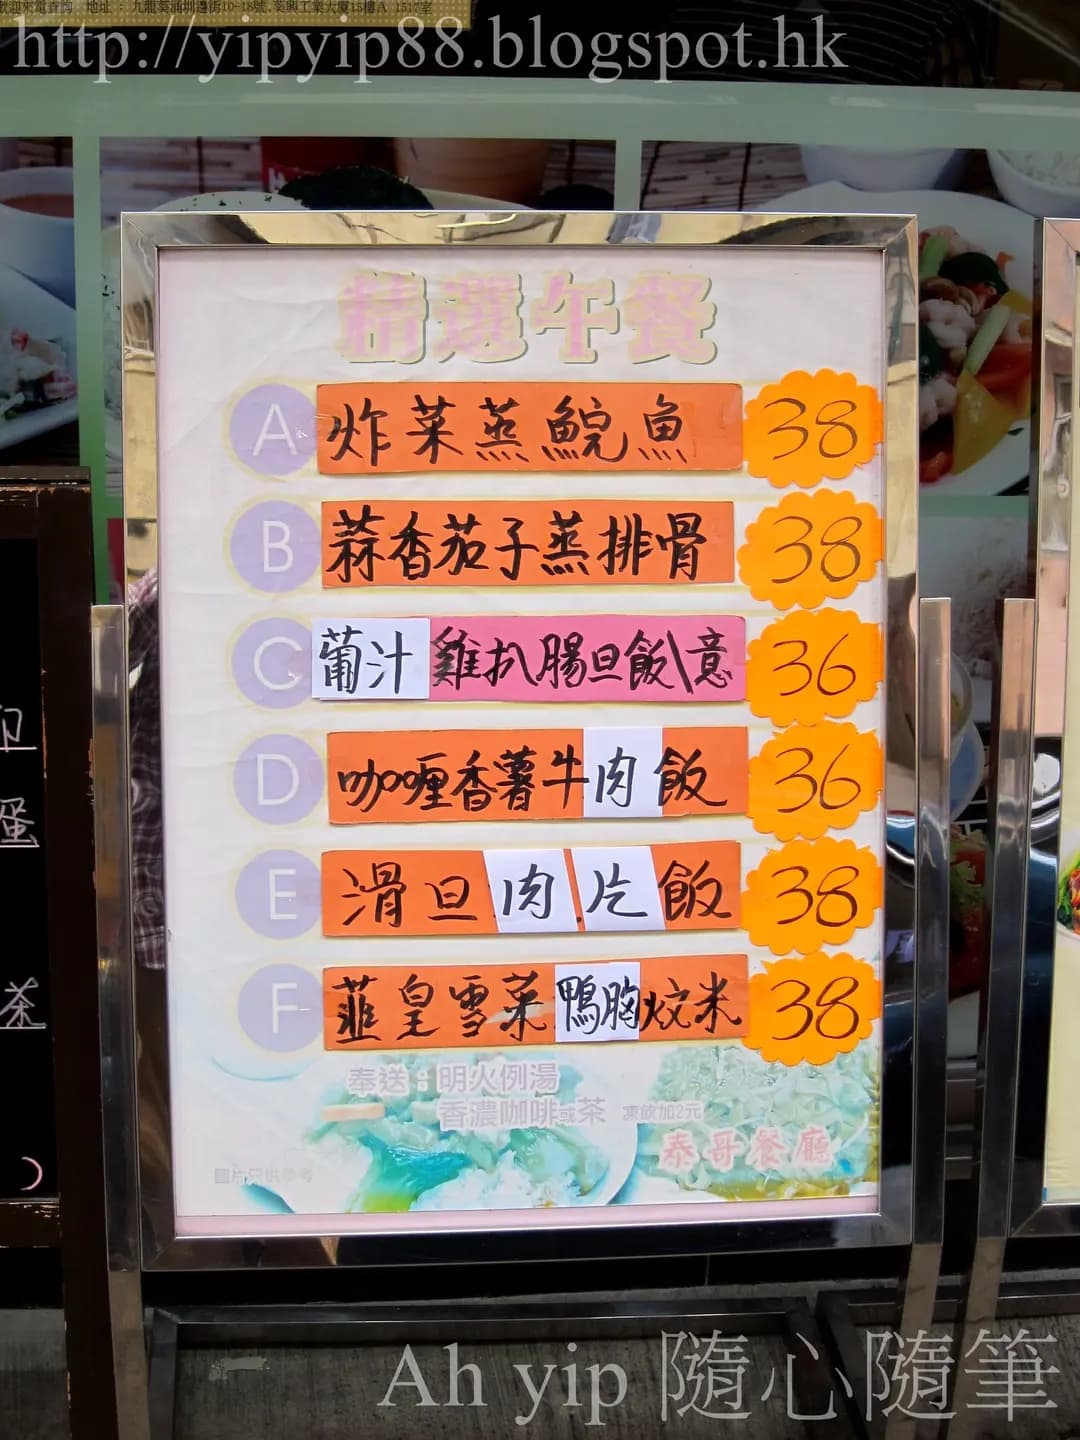 歡迎來電查詢 地址：九龍葵涌圳邊街10-18號,葵興工業大廈15樓A 1517室
http://yipyip88.blogspot.hk
精選午餐
A 炸菜蒸鯇魚 38
B 蒜香茄子蒸排骨 38
C 葡汁雞扒腸旦飯\意 36
D 咖喱香薯牛肉飯 36
E 滑旦肉片飯 38
F 韮皇雪菜鴨胸炆米 38
奉送：明火例湯
香濃咖啡或茶 凍飲加2元
泰哥餐廳
圖片只供參考
蛋
茶
Ah yip 隨心隨筆